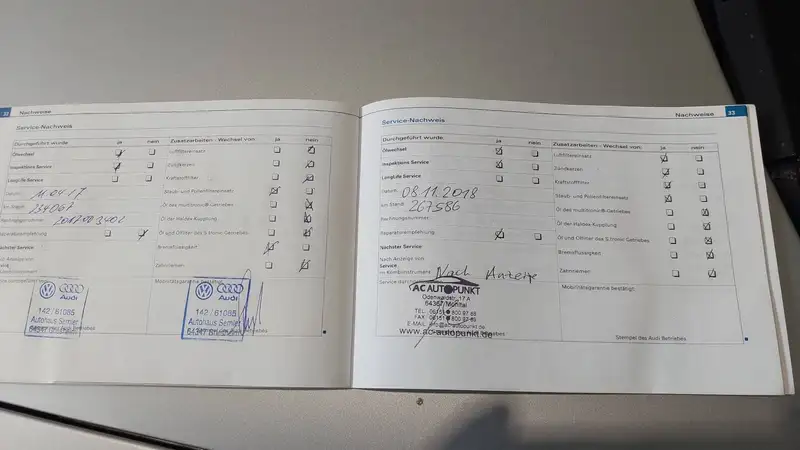 32 Nachweise
Service-Nachweis
Durchgeführt wurde: ja nein
Ölwechsel
Inspektions Service
Longlife Service
Datum: 11.04.17
km-Stand: 234067
Rechnungsnummer:
Reparaturempfehlung
Nächster Service:
Nach Anzeige von
Service
im Kombiinstrument
Zusatzarbeiten - Wechsel von: ja nein
Luftfiltereinsatz
Zündkerzen
Kraftstofffilter
Staub- und Pollenfiltereinsatz
Öl des multitronic®-Getriebes
Öl der Haldex-Kupplung
Öl und Ölfilter des S tronic Getriebes
Bremsflüssigkeit
Zahnriemen
Mobilitätsgarantie bestätigt:
Audi
142 / 61085
Autohaus
Audi
142 / 61085
Autohaus
Nachweise 33
Service-Nachweis
Durchgeführt wurde: ja nein
Ölwechsel
Inspektions Service
Longlife Service
Datum: 08.11.2018
km-Stand: 267586
Rechnungsnummer:
Reparaturempfehlung
Nächster Service:
Nach Anzeige von
Service
im Kombiinstrument Nach Anzeige
AC AUTOPUNKT
Odenwaldstr. 17 A
TEL.: 06151
FAX: 06151
E-MAIL: info@ac-autopunkt.de
www.ac-autopunkt.de
Zusatzarbeiten - Wechsel von: ja nein
Luftfiltereinsatz
Zündkerzen
Kraftstofffilter
Staub- und Pollenfiltereinsatz
Öl des multitronic®-Getriebes
Öl der Haldex-Kupplung
Öl und Ölfilter des S tronic Getriebes
Bremsflüssigkeit
Zahnriemen
Mobilitätsgarantie bestätigt:
Stempel des Audi Betriebes